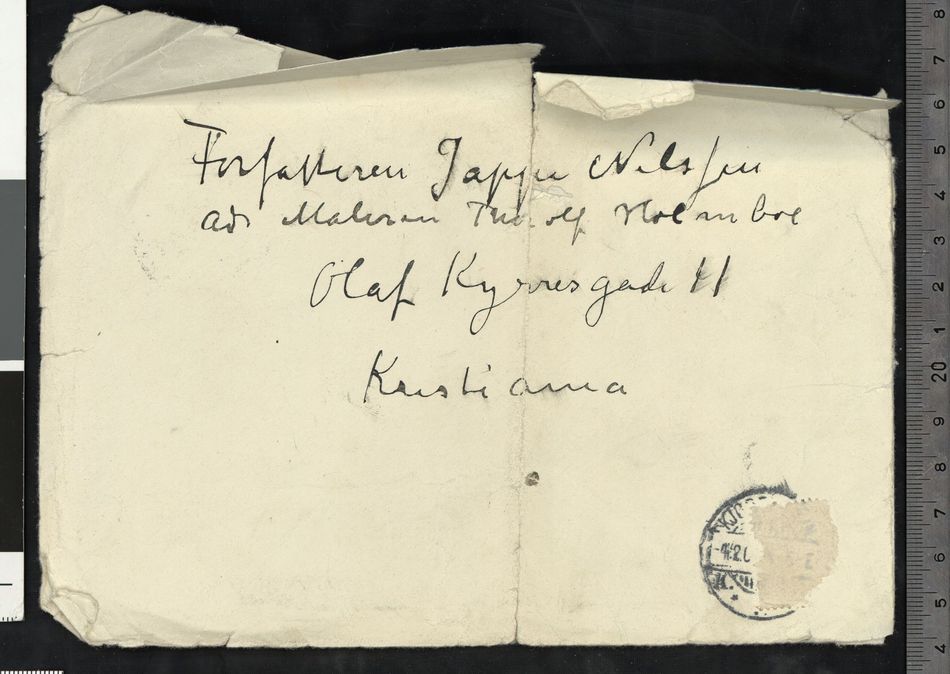 Forfatteren Jappe Nilssen
adr Maleren Thorolf Holmboe
Olaf Kyrresgade 11
Kristiania
KJØB
K.
8
7
6
5
4
3
2
1
20
9
8
7
6
5
4